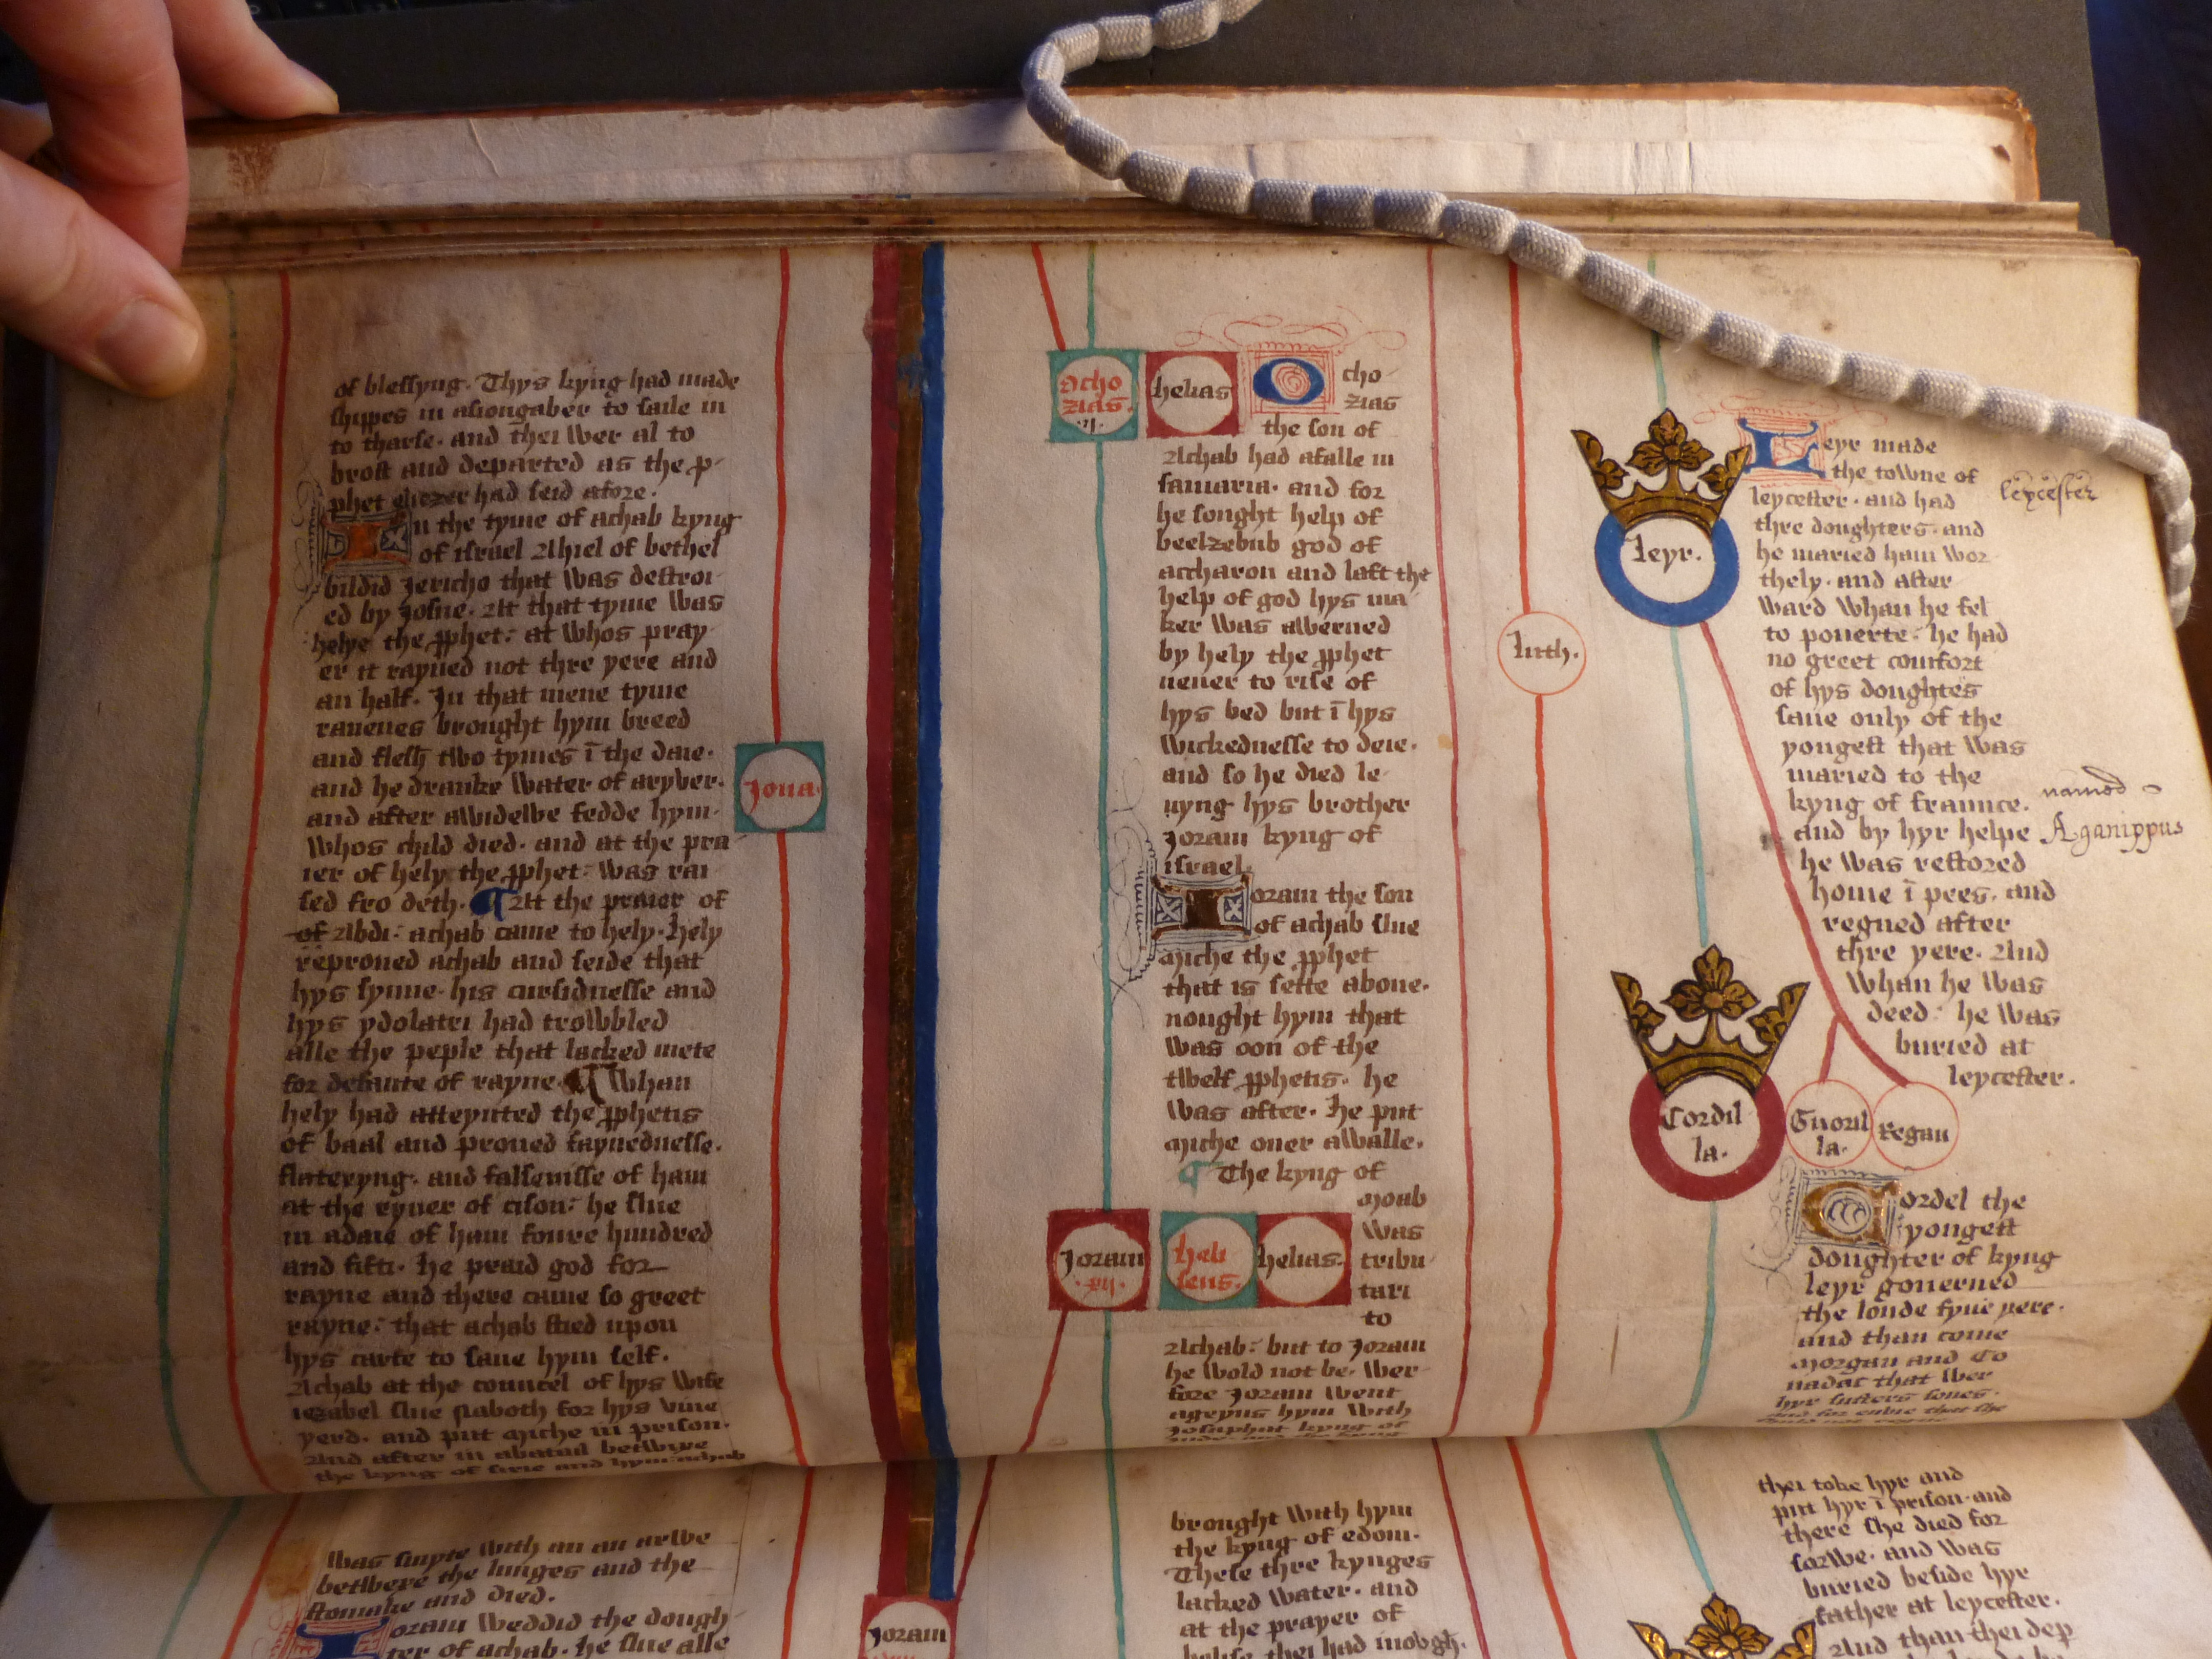 of blessyng. Thys kyng had made
shypes in asiongaber to saile in
to tharse. and thei wer al to
brost and departed as the p-
phet eliezer had seid afore.
In the tyme of achab kyng
of israel Ahiel of bethel
bildid Jericho that was destroi-
ed by Josue. At that tyme was
helye the pphet: at whos pray-
er it rayned not thre yere and
an half. In that mene tyme
rauenes brought hym breed
and flesh two tymes ī the daie.
and he dranke water of aryver.
and after awidewe fedde hym.
whos child died. and at the pra-
ier of hely the pphet: was rai-
sed fro deth. ¶ At the praier of
of Abdi: achab came to hely. hely
reproued achab and seide that
hys synne. his cursidnesse and
hys ydolatri had trowbbled
alle the peple that lacked mete
for defaute of rayne. ¶ Whan
hely had atteynted the pphetis
of baal and proued faynednesse.
flateryng. and falsenisse of ham
at the ryuer of cison: he slue
in adaie of ham foure hundred
and fifti. he praid god for
rayne and there came so greet
rayne: that achab stied upon
hys carte to saue hym self.
Achab at the councel of hys wife
iezabel slue naboth for hys vine
yerd. and put miche in prison.
And after in abatail betwixe
the kyng of sirie and hym achab
was smyte with an an arwe
betwere the lunges and the
stomake and died.
Joram weddid the dough-
ter of achab. he slue alle
Jona
Joram
Ocho
zias.
helias
Ocho-
zias
the son of
Achab had afalle in
samaria. and for
he sought help of
beelzebub god of
accharon and laft the
help of god hys ma-
ker was awerned
by hely the pphet
neuer to rise of
hys bed but ī hys
wickednesse to deie.
and so he died le-
uyng hys brother
Joram kyng of
israel.
Joram the son
of achab slue
miche the pphet
that is sette aboue.
nought hym that
was oon of the
twelf pphetis. he
was after. he put
miche ouer awalle.
¶ The kyng of
moab
was
tribu-
tari
to
Joram
heli
seus.
helias.
Achab: but to Joram
he wold not be. wer-
fore Joram went
ageyns hym with
Josaphat kyng of
brought with hym
the kyng of edom.
These thre kynges
lacked water. and
at the prayer of
helise thei had inovgh.
Iuth.
leyr.
Leyr made
the towne of
leycester. and had
leycester
thre doughters. and
he maried ham wor-
thely. and after-
ward whan he fel
to pouerte: he had
no greet comfort
of hys doughtes
saue only of the
yongest that was
maried to the
kyng of fraunce.
named
and by hyr helpe
Aganippus
he was restored
home ī pees. and
regned after
thre yere. And
whan he was
deed: he was
buried at
leycester.
Cordil
la.
Gnoril
la.
Regan
Cordel the
yongest
doughter of kyng
leyr gouerned
the londe fyue yere.
and than come
Morgan and Co-
nadac that wer
hyr susters sones.
and for enuie that she
thei toke hyr and
put hyr ī prison. and
there she died for
sorwe. and was
buried beside hyr
father at leycester.
And than thei dep